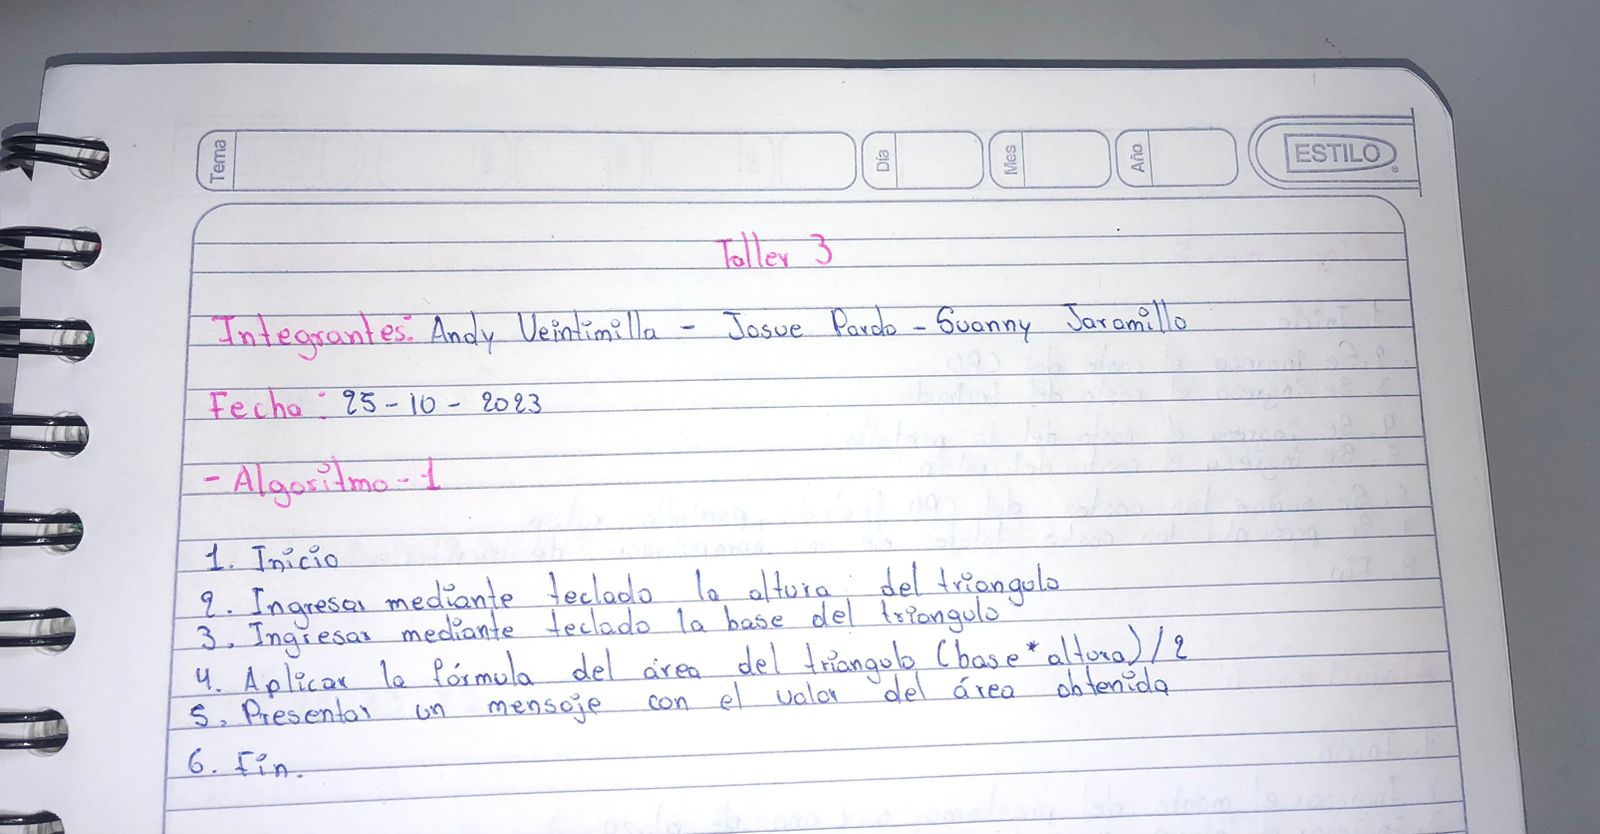 Tema
Día
Mes
Año
ESTILO
Taller 3
Integrantes: Andy Veintimilla - Josue Pardo - Suanny Jaramillo
Fecha: 25-10-2023
- Algoritmo - 1
1. Inicio
2. Ingresar mediante teclado la altura del triangulo
3. Ingresar mediante teclado la base del triangulo
4. Aplicar la fórmula del área del triangulo (base * altura) / 2
5. Presentar un mensaje con el valor del área obtenida
6. Fin.